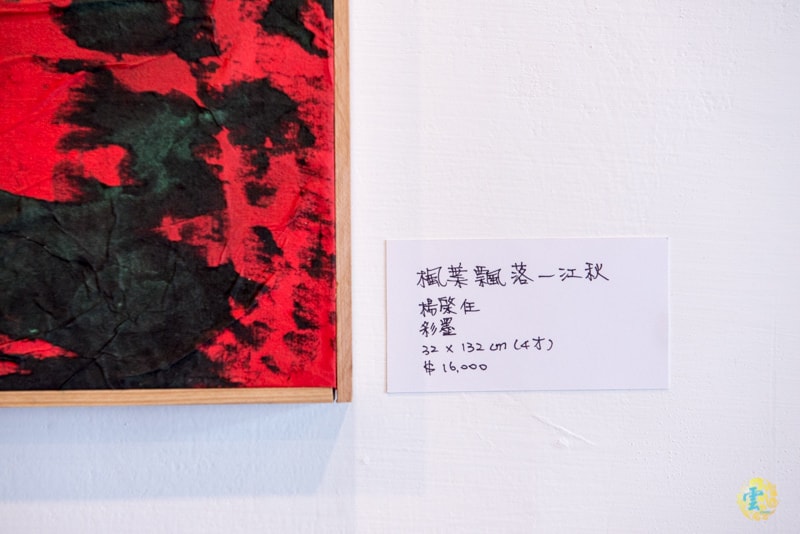 楓葉飄落一江秋
楊榮住
彩墨
32 x 132 cm (4才)
$ 16,000
雲